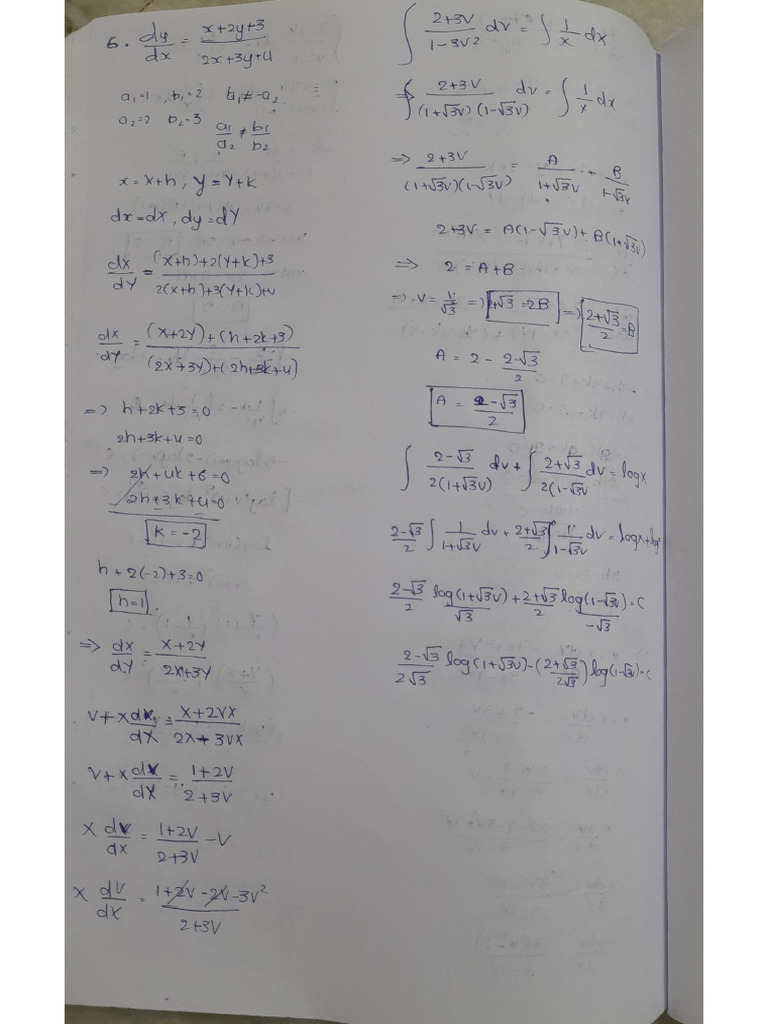 6. dy/dx = (x+2y+3)/(2x+3y+4)
a₁=1 b₁=2 b₁≠-a₂
a₂=2 b₂=3 a₁/a₂ ≠ b₁/b₂
x = X+h, y = Y+k
dx=dX, dy=dY
dX/dY = ((X+h)+2(Y+k)+3)/(2(X+h)+3(Y+k)+4)
dX/dY = ((X+2Y)+(h+2k+3))/((2X+3Y)+(2h+3k+4))
=> h+2k+3=0
2h+3k+4=0
=> 2h+4k+6=0
2h+3k+4=0
k=-2
h+2(-2)+3=0
h=1
=> dX/dY = (X+2Y)/(2X+3Y)
V+X dV/dX = (X+2VX)/(2X+3VX)
V+X dV/dX = (1+2V)/(2+3V)
X dV/dX = (1+2V)/(2+3V) - V
X dV/dX = (1+2V-2V-3V²)/(2+3V)
∫ (2+3V)/(1-3V²) dV = ∫ 1/x dx
=> ∫ (2+3V)/((1+√3V)(1-√3V)) dV = ∫ 1/x dx
=> (2+3V)/((1+√3V)(1-√3V)) = A/(1+√3V) + B/(1-√3V)
2+3V = A(1-√3V)+B(1+√3V)
=> 2 = A+B
=> V=1/√3 => 2+√3=2B => (2+√3)/2=B
A = 2 - (2-√3)/2
A = (2-√3)/2
∫ (2-√3)/(2(1+√3V)) dV + ∫ (2+√3)/(2(1-√3V) dV = logx
(2-√3)/2 ∫ 1/(1+√3V) dV + (2+√3)/2 ∫ 1/(1-√3V) dV = logx+
(2-√3)/2 log(1+√3V)/√3 + (2+√3)/2 log(1-√3V)/-√3 = C
(2-√3)/2√3 log(1+√3V) - ((2+√3)/2√3) log(1-√3V) = C